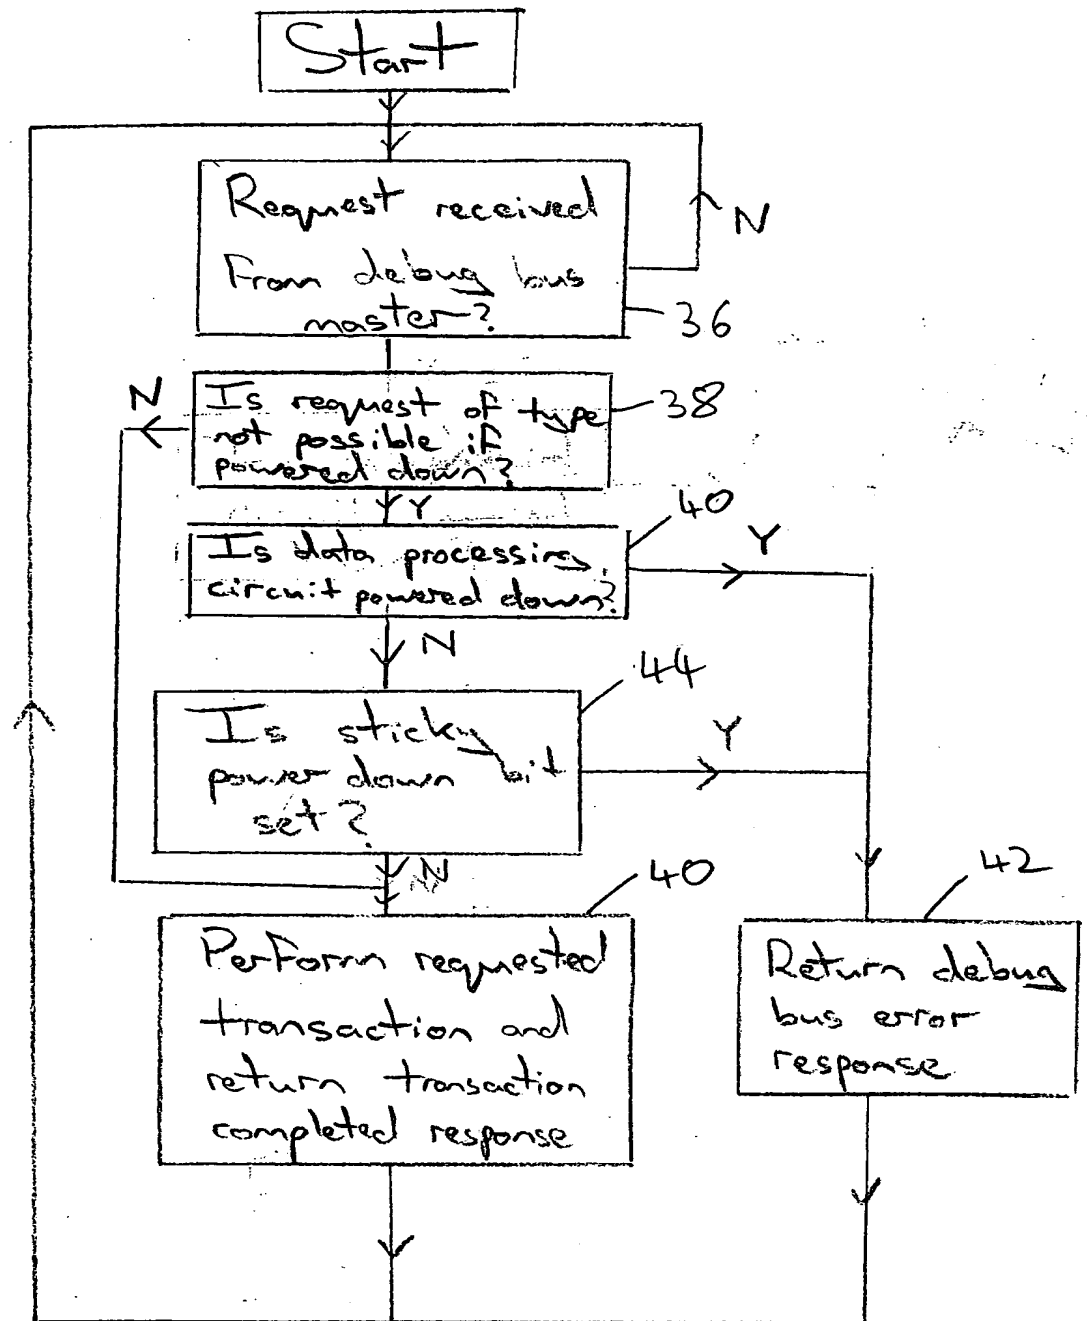 Start
Request received
From debug bus
master?
N
36
N
Is request of type
not possible if
powered down?
38
Y
40
Is data processing
circuit powered down?
Y
N
44
Is sticky
power down bit
set?
Y
N
40
42
Perform requested
transaction and
return transaction
completed response
Return debug
bus error
response